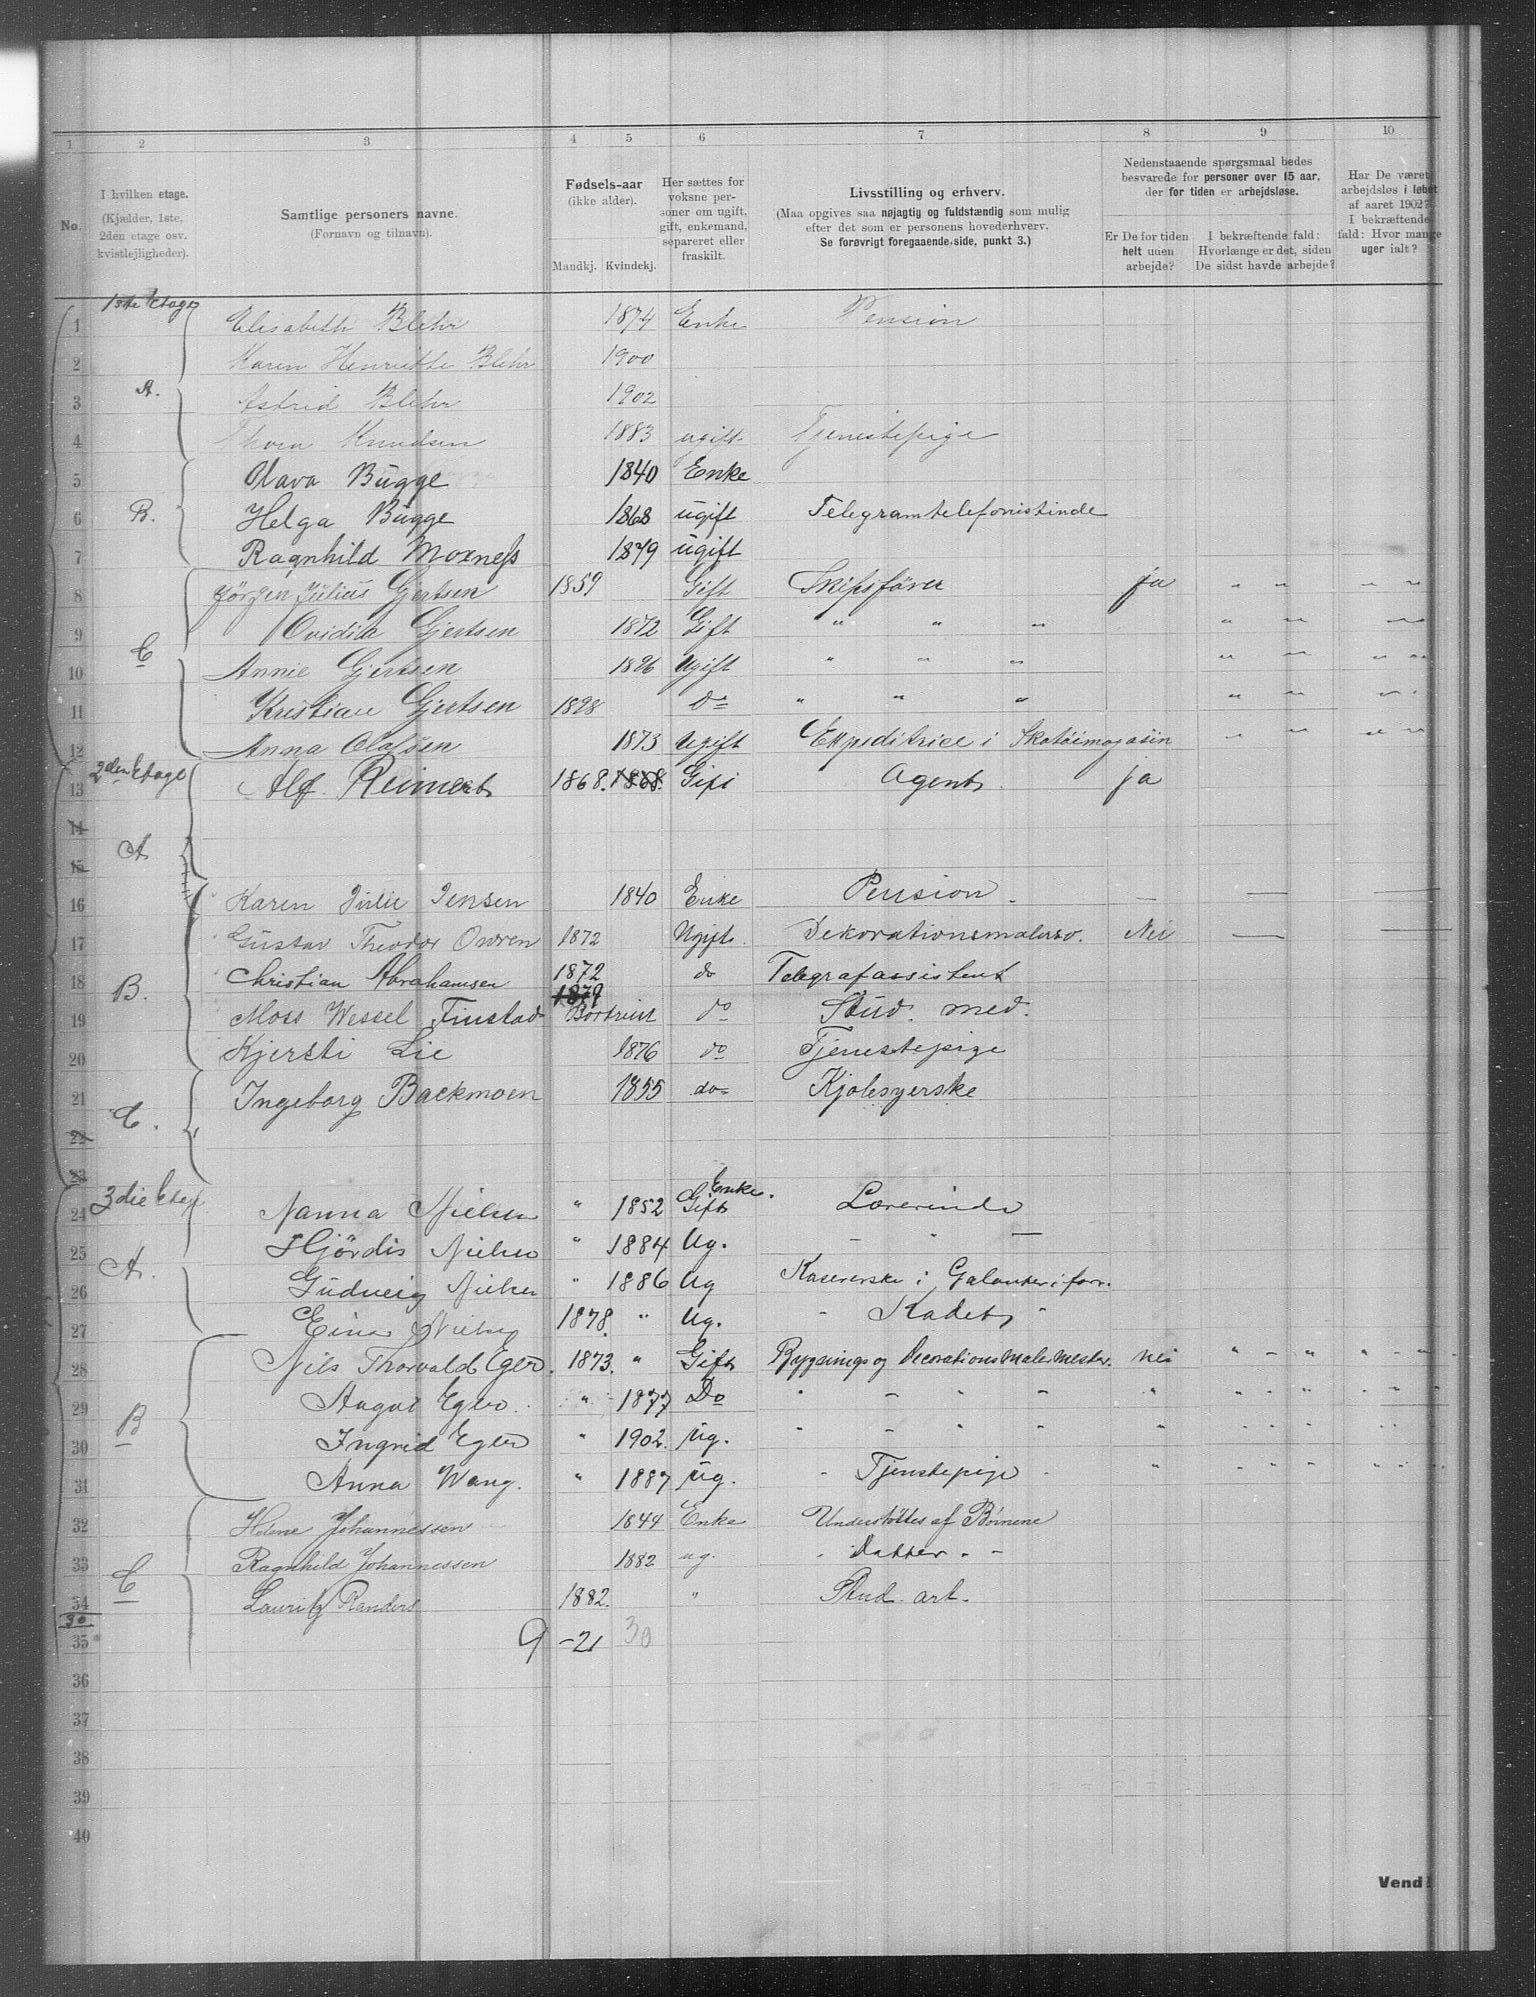 1 2 3 4 5 6 7 8 9 10
No.
I hvilken etage.
(Kjælder, 1ste, 2den etage osv. kvistlejligheder).
Samtlige personers navne.
(Fornavn og tilnavn).
Fødsels-aar
(ikke alder).
Mandkj. Kvindekj.
Her sættes for voksne personer om ugift, gift, enkemand, separeret eller fraskilt.
Livsstilling og erhverv.
(Maa opgives saa nøjagtig og fuldstændig som mulig efter det som er personens hovederhverv.
Se forøvrigt foregaaende side, punkt 3.)
Nedenstaaende spørgsmaal bedes besvarede for personer over 15 aar, der for tiden er arbejdsløse.
Er De for tiden helt uden arbejde?
I bekræftende fald: Hvorlænge er det, siden De sidst havde arbejde?
Har De været arbejdsløs i løbet af aaret 1902? I bekræftende fald: Hvor mange uger ialt?
1ste Etage
1 Elisabeth Blehr 1874 Enke Pension
2 Karen Henriette Blehr 1900
A.
3 Astrid Blehr 1902
4 Thora Knudsen 1883 ugift Tjenestepige
5 Olava Bugge 1840 Enke
6 B. Helga Bugge 1868 ugift Telegramtelefonistinde
7 Ragnhild Moxness 1879 ugift
8 Jørgen Julius Gjertsen 1859 Gift Skipsfører ja " " " "
9 Ovidia Gjertsen 1872 Gift " " " " " "
C
10 Annie Gjertsen 1896 Ugift " " " " " " "
11 Kristian Gjertsen 1898 do " " " " " "
12 Anna Olafsen 1873 Ugift Expeditrice i Skotøimagasin " " " "
2den Etage
13 Alf Reimers 1868. 1868. Gift Agent ja
14
A
15
16 Karen Julie Jensen 1840 Enke Pension. — — —
17 Gustav Theodor Owren 1872 Ugift. Dekorationsmalersv. Nei — —
18 Christian Abrahamsen 1872 do Telegrafassistent
B.
1879
19 Moss Wessel Finstad Bortreist do Stud. med.
20 Kjersti Lie 1876 do Tjenestepige
21 Ingeborg Backmoen 1855 do Kjolesyerske
C.
22
23
3die Etage
Enke.
24 Nanna Nielsen " 1852 Gift Lærerinde
25 Hjördis Nielsen " 1884 Ug. — " —
A.
26 Gudveig Nielsen " 1886 Ug Kasererske i Galanteriforr.
27 Einar Nielsen 1878. " Ug. " Kadet "
28 Nils Thorvald Eger. 1873. " Gift Bygnings og Decorations Maler Mester. nei " - " " - "
29 August Eger. " 1877 Do " - " - " " " " " "
B
30 Ingrid Eger " 1902. Ug. " - " " " " " "
31 Anna Wang. " 1887 ug. " Tjenstepige " " " " "
32 Helene Johannessen 1844 Enke Understøttes af Børnene
33 Ragnhild Johannessen 1882 ug. " Datter. " -
C
34 Lauritz Randers 1882. " Stud. art.
30
35 9 -21 30
36
37
38
39
40
Vend!